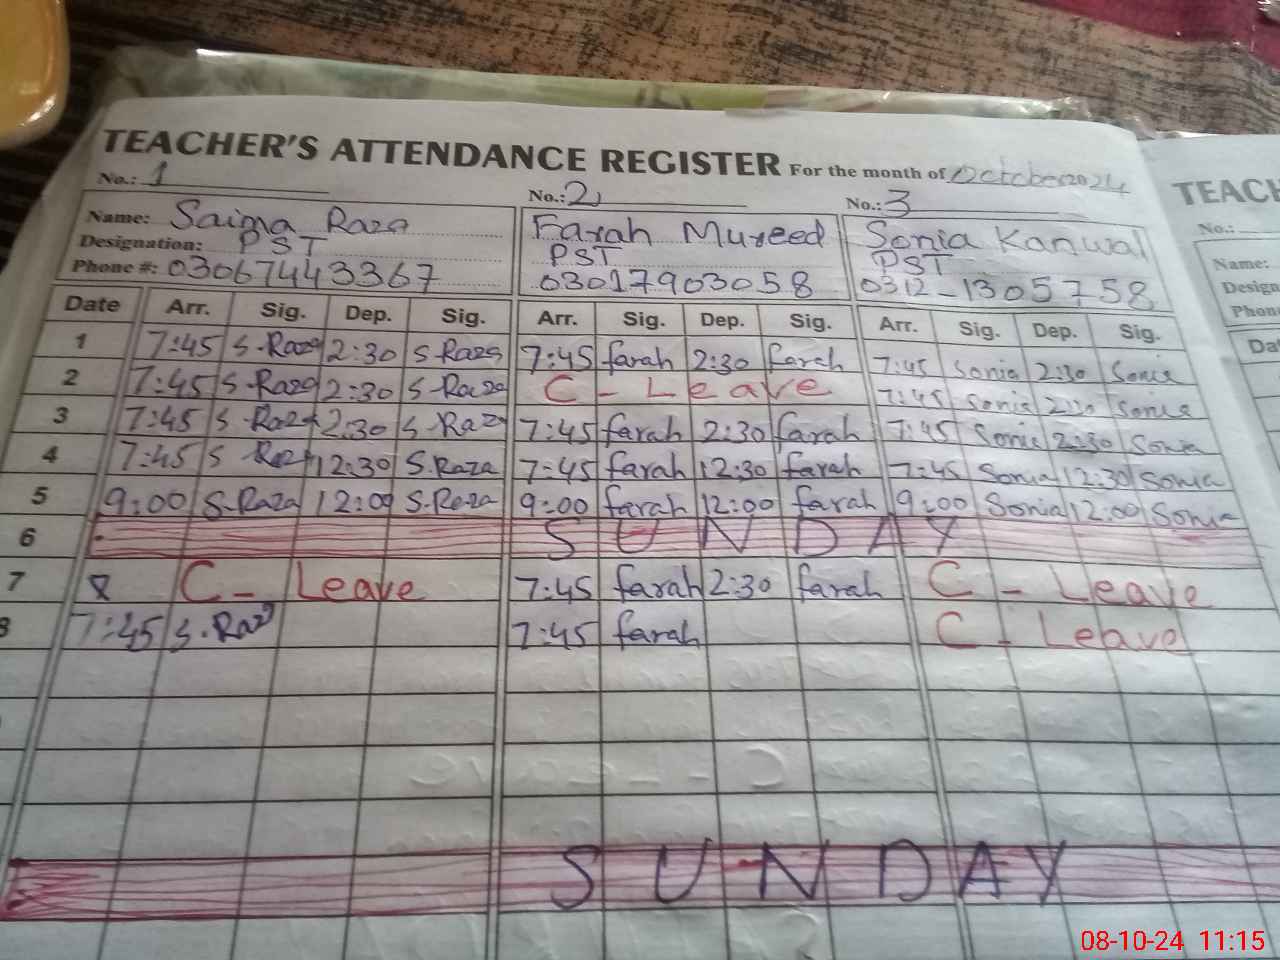 TEACHER'S ATTENDANCE REGISTER For the month of October 2024
TEACH
No.: 1 No.: 2, No.: 3
No.:
Name: Saima Raza Farah Mureed Sonia Kanwal
Name:
Designation: PST PST PST
Design
Phone #: 03067443367 03017903058 0312-1305758
Phon
Date Arr. Sig. Dep. Sig. Arr. Sig. Dep. Sig. Arr. Sig. Dep. Sig.
Da
1 7:45 S.Raza 2:30 S.Raza 7:45 farah 2:30 farah 7:45 Sonia 2:30 Sonia
2 7:45 S.Raza 2:30 S.Raza C - Leave 7:45 Sonia 2:30 Sonia
3 7:45 S.Raza 2:30 S.Raza 7:45 farah 2:30 farah 7:45 Sonia 2:30 Sonia
4 7:45 S Raza 12:30 S.Raza 7:45 farah 12:30 farah 7:45 Sonia 12:30 Sonia
5 9:00 S.Raza 12:00 S.Raza 9:00 farah 12:00 farah 9:00 Sonia 12:00 Sonia
6 SUNDAY
7 C - Leave 7:45 farah 2:30 farah C - Leave
8 7:45 S.Raza 7:45 farah C - Leave
SUNDAY
08-10-24 11:15